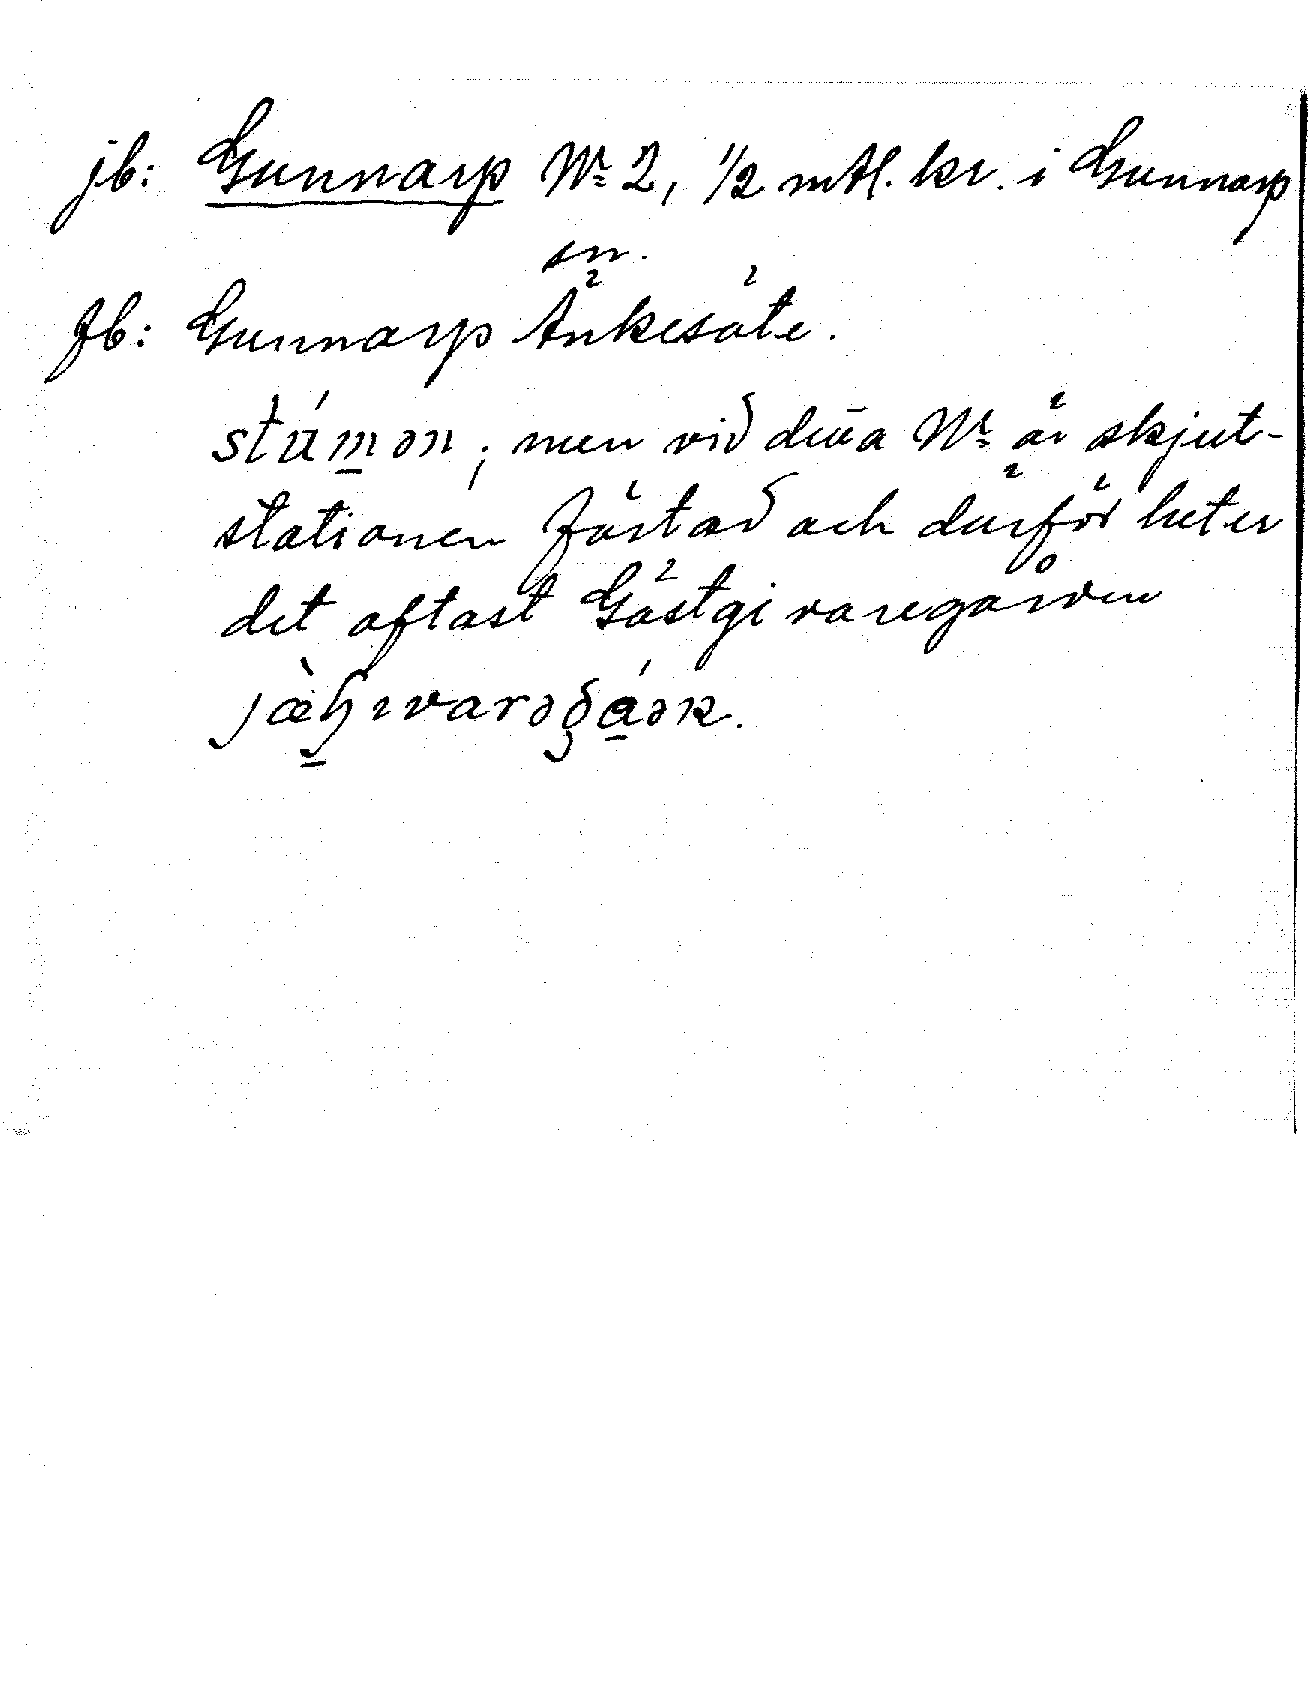 jb: Gunnarp Nr 2, 1/2 mtl. kr. i Gunnarp
sn.
fb: Gunnarp Änkesäte.
stúmən; men vid detta Nr är skjut-
stationen fästad och därför heter
det oftast Gästgivaregården